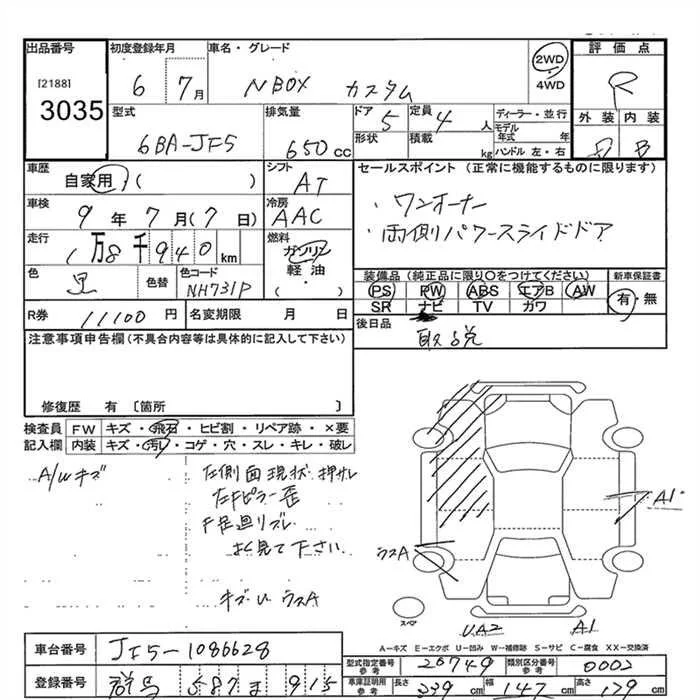 出品番号 初度登録年月 車名・グレード 評価点
[2188]
3035
6 7月 NBOX カスタム 2WD・4WD R
型式 排気量 ドア 5 定員 4人 ディーラー・並行 外装 内装
6BA-JF5 650cc 形状 積載 kg モデル年式 年 ハンドル 左・右 B
車歴 シフト セールスポイント(正常に機能するものに限ります)
自家用( ) AT
車検 冷房 ・ワンオーナー
9年7月(7日) AAC ・両側パワースライドドア
走行 燃料
1万8千940km ガソリン
軽油・
( )
色 黒 色替 色コード NH731P
装備品(純正品に限り○をつけてください) 新車保証書
PS PW ABS エアB AW 有・無
SR ナビ TV カワ
R券 11100円 名変期限 月 日 後日品 取説
注意事項申告欄(不具合内容等は具体的に記入して下さい)
修復歴 有〔箇所 〕
検査員 FW キズ・飛石・ヒビ割・リペア跡・×要
記入欄 内装 キズ・汚レ・コゲ・穴・スレ・キレ・破レ
A/Wキズ 左側面現状 押サレ
左Fピラー歪
F足廻リズレ
よく見て下さい。
キズU ウスA
ウスA
A1
スペア
UA2 A1
A-キズ E-エクボ U-凹み W-補修跡 S-サビ C-腐食 XX-交換済
車台番号 JF5-1086628
型式指定番号 参考 20749 類別区分番号 参考 0002
登録番号 群馬 587 ま 915
車庫証明用 参考 長さ 339cm 幅 147cm 高さ 179cm